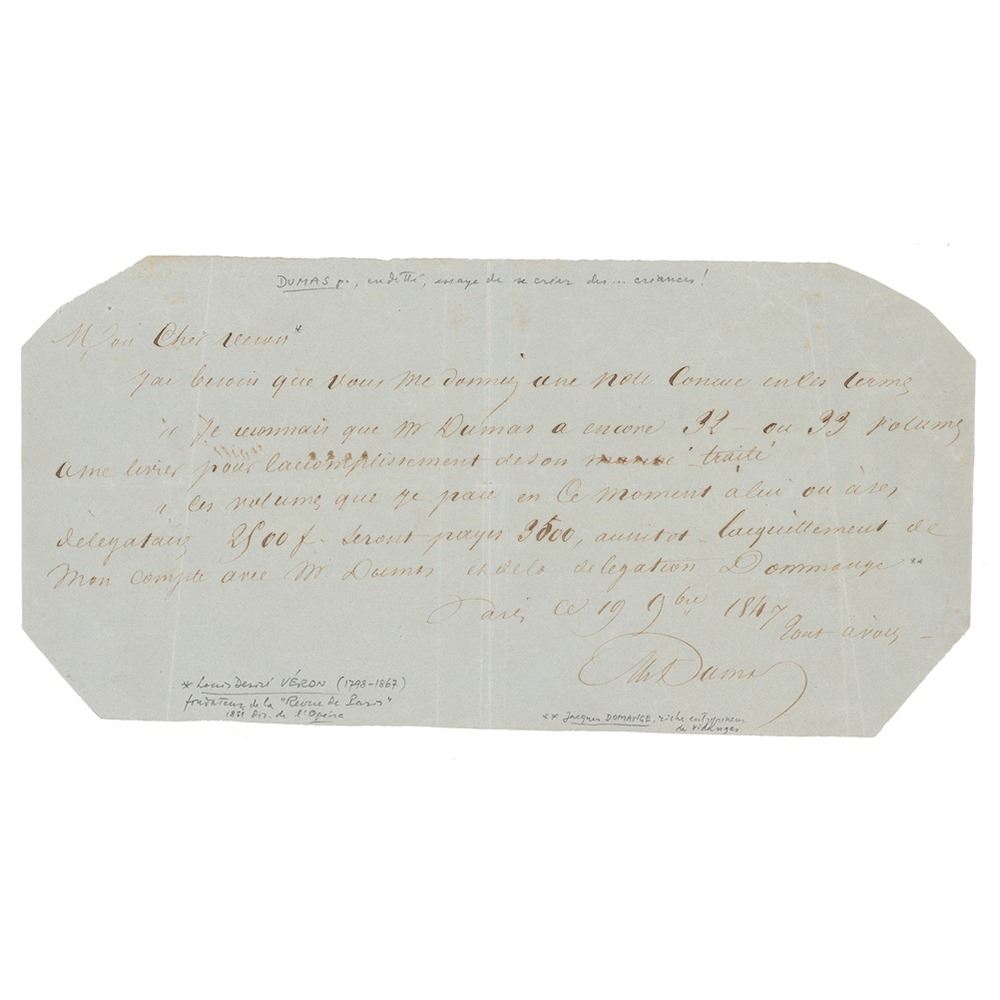 DUMAS p., endetté, essaye de se créer des... créances!
Mon Cher Veron*
J'ai besoin que vous me donniez une note Concue en ces termes
" Je reconnais que Mr Dumas a encore 32 - ou 33 volumes
a me livrer pour l'accomplissement de son traité
" Ces volumes que je paie en Ce moment a lui ou à ses
délégataires 2500 f. seront payes 3500, aussitot l'acquittement de
Mon compte avec Mr Dumas et de la delegation Dommange **
Paris Ce 19 9bre 1847
Tout a vous -
Alex Dumas
* Louis Desiré VÉRON (1798-1867)
fondateur de la "Revue de Paris"
1831 Dir. de l'Opéra
** Jacques DOMANGE, riche entrepreneur
de vidanges